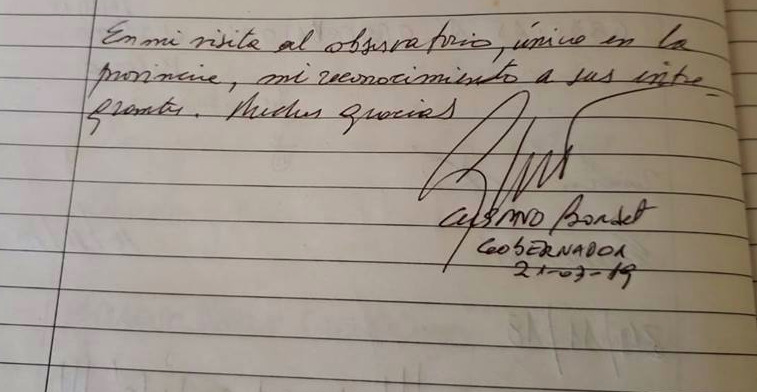 En mi visita al observatorio, único en la
provincia, mi reconocimiento a sus inte-
grantes. Muchas gracias
GUSTAVO Bordet
GOBERNADOR
21-03-19